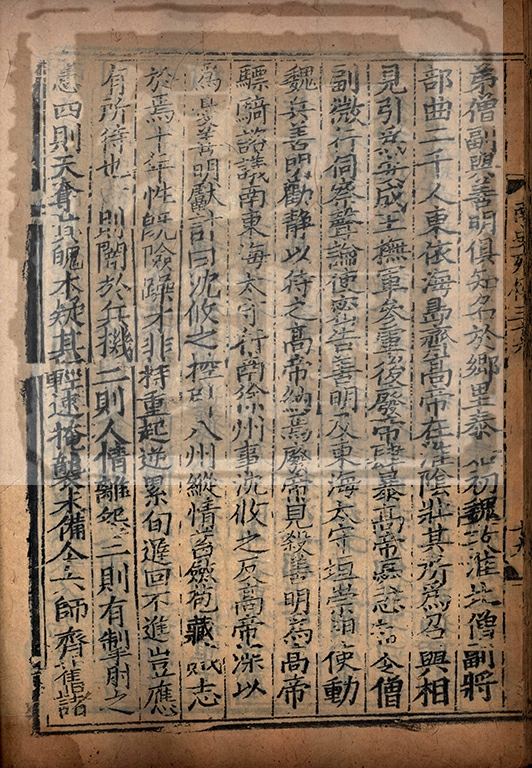 弟僧副與善明俱知名於鄉里泰始初魏攻淮北僧副將
部曲二千人東依海島齊高帝在淮陰壯其所爲召與相
見引爲安成王撫軍參軍後廢帝肆暴高帝憂恐常令僧
副微行伺察聲論使密告善明及東海太守垣崇祖使動
魏兵善明勸靜以待之高帝納焉廢帝見殺善明爲高帝
驃騎諮議南東海太守行南徐州事沈攸之反高帝深以
爲憂善明獻計曰沈攸之控引八州縱情蓄斂苞藏賊志
於焉十年性旣險躁才非持重起逆累旬遲回不進豈應
有所待也一則闇於兵機二則人情離怨三則有掣肘之
患四則天奪其魄本疑其輕速掩襲未備今六師齊舊諸